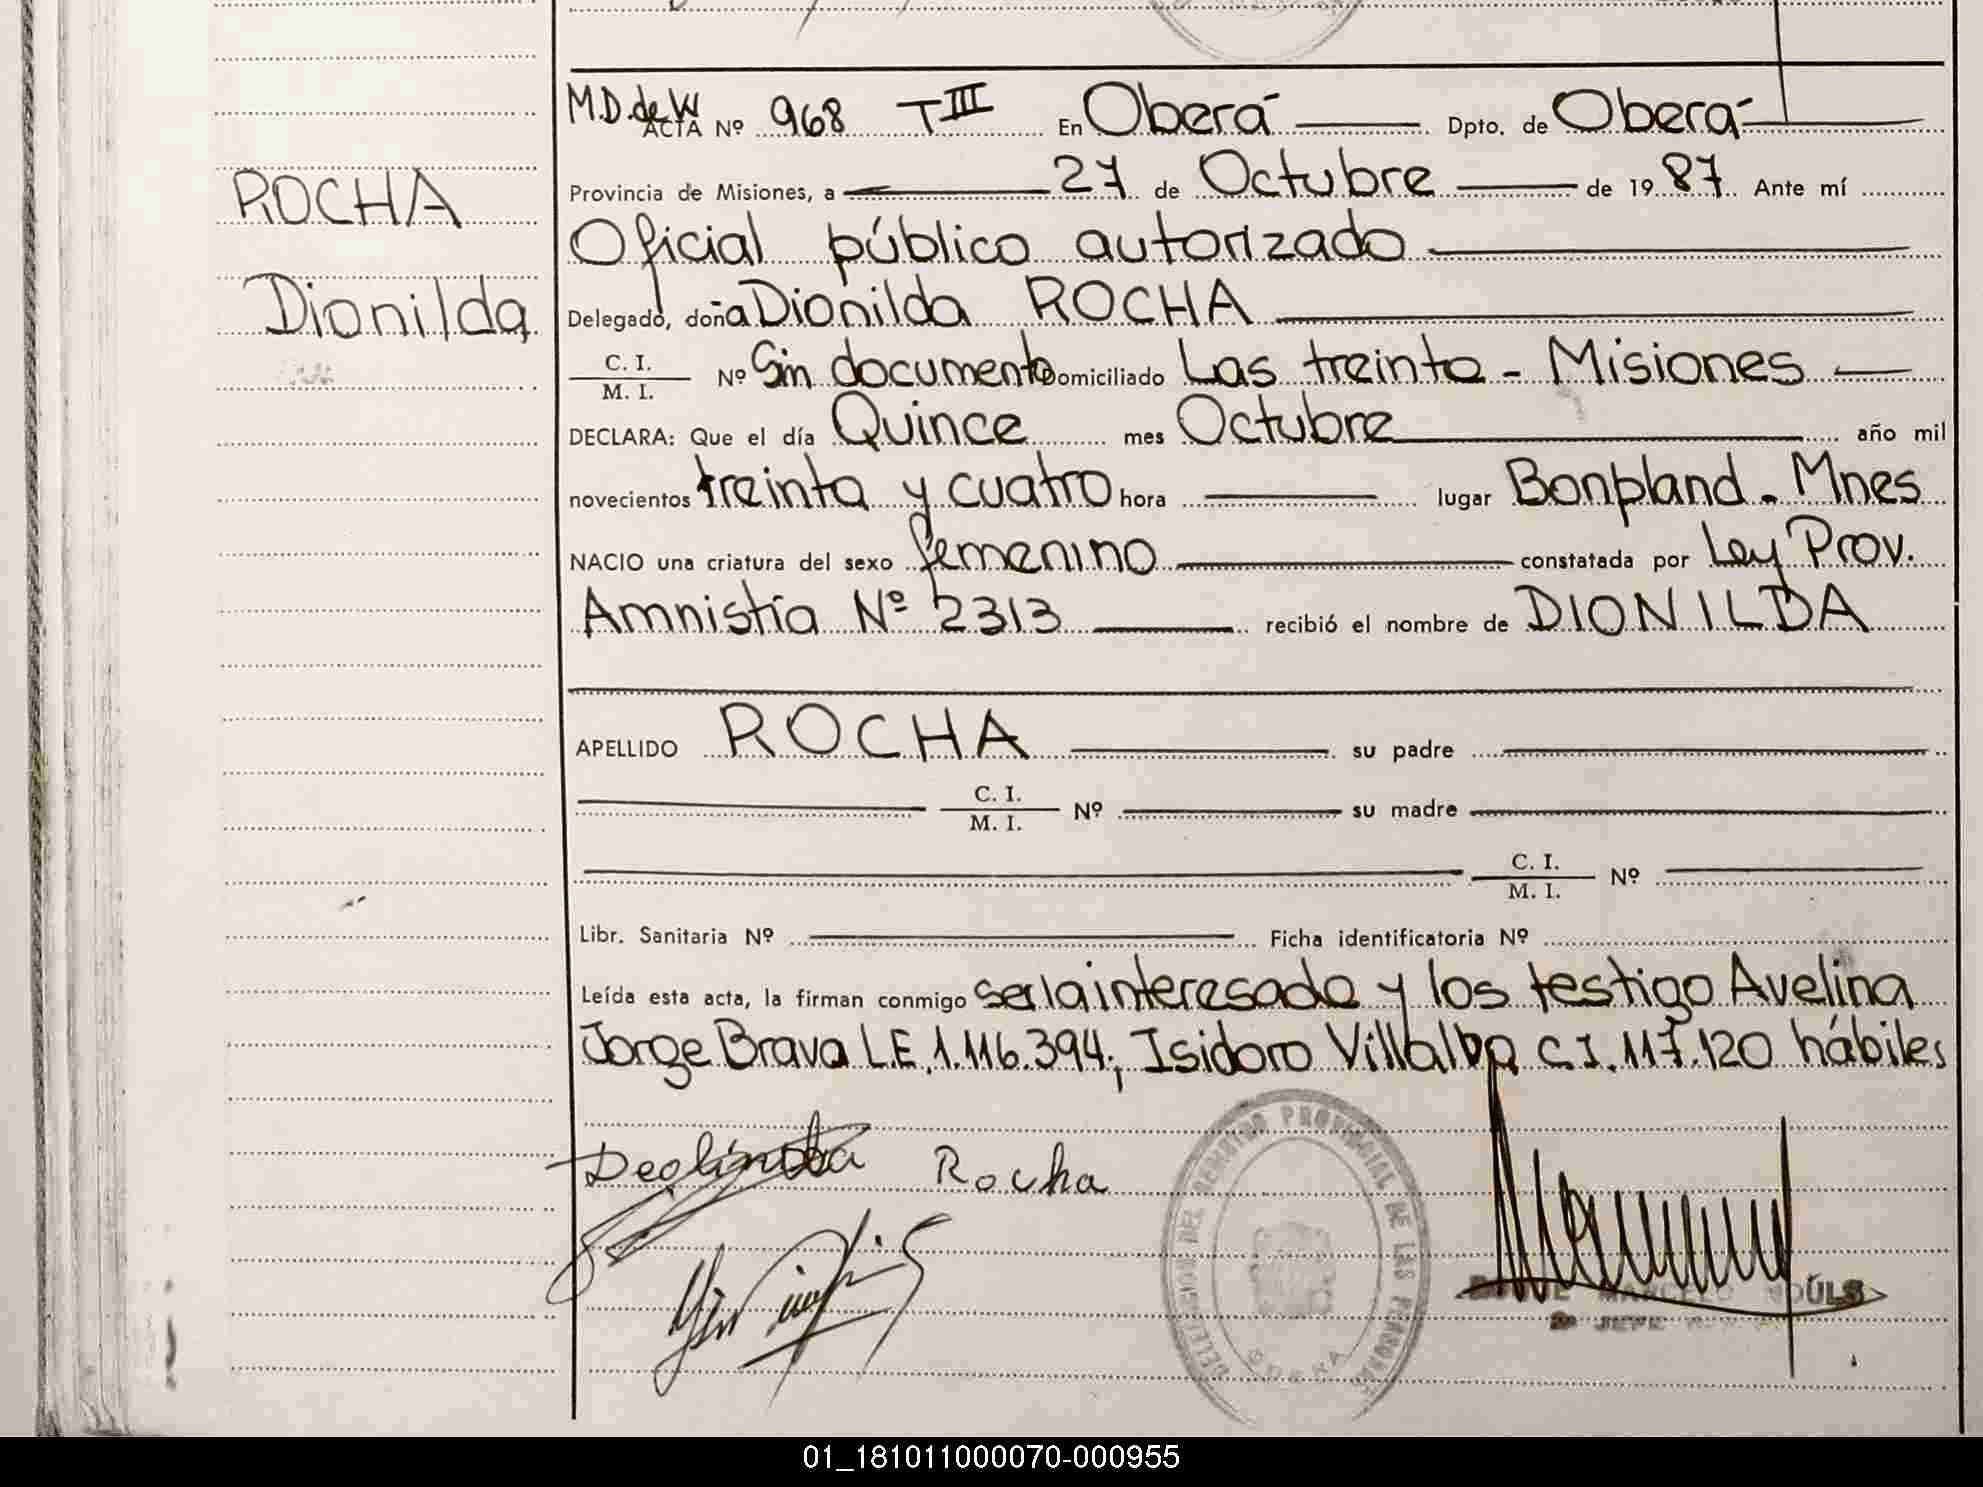 M.D. de W
ACTA Nº 968 TIII En Oberá Dpto. de Oberá
Provincia de Misiones, a 27 de Octubre de 19 87 Ante mí
Oficial público autorizado
Delegado, doña Dionilda ROCHA
C. I.
M. I.
Nº Sin documento Domiciliado Las treinta - Misiones
DECLARA: Que el día Quince mes Octubre año mil
novecientos treinta y cuatro hora lugar Bonpland - Mnes
NACIO una criatura del sexo femenino constatada por Ley Prov.
Amnistía Nº 2313 recibió el nombre de DIONILDA
APELLIDO ROCHA su padre
C. I.
M. I.
Nº su madre
C. I.
M. I.
Nº
Libr. Sanitaria Nº Ficha identificatoria Nº
Leída esta acta, la firman conmigo ser la interesada y los testigo Avelina
Jorge Brava L.E. 1.116.394; Isidoro Villalba C.I. 117.120 hábiles
Rocha
DELEGACION DEL REGISTRO PROVINCIAL DE LAS PERSONAS
OBERA
MARCELO
2º JEFE
ROCHA
Dionilda
01_181011000070-000955